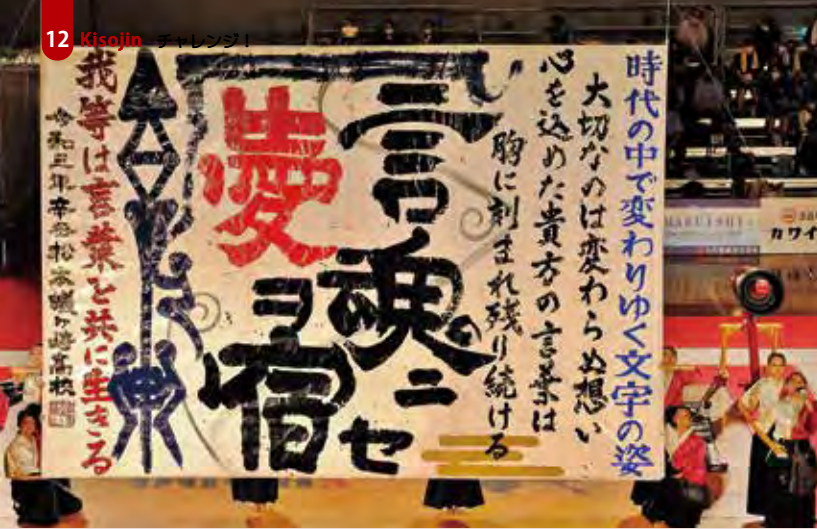 12 Kisojin チャレンジ!
時代の中で変わりゆく文字の姿
大切なのは変わらぬ想い
心を込めた貴方の言葉は
胸に刻まれ残り続ける
言魂ニ
愛ヲ宿セ
我等は言葉と共に生きる
令和三年辛丑松本蟻ヶ崎高校
カワイ